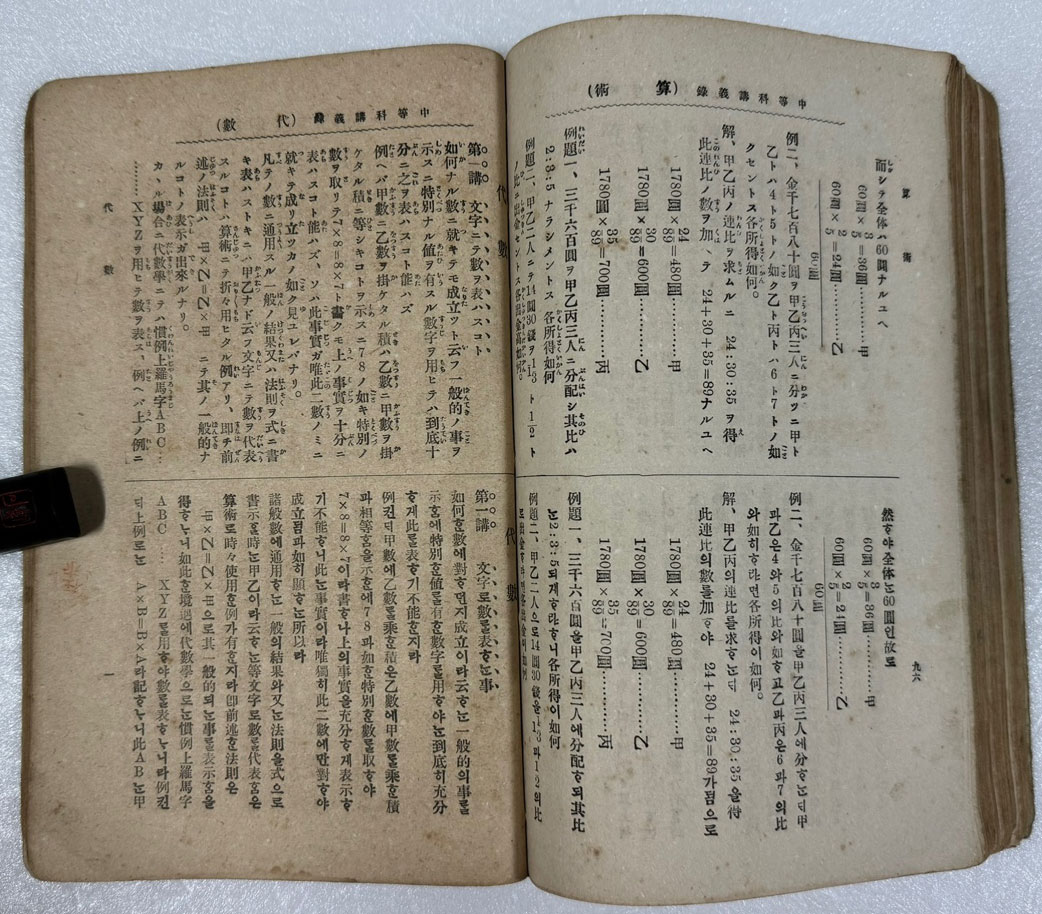 中等科講義錄(算術)
算術
而シテ全体ハ60圓ナルユヘ
60圓×3/5=36圓………甲
60圓×2/5=24圓………乙
60圓
例二、金千七百八十圓ヲ甲乙丙三人ニ分ツニ甲ト
乙トハ4ト5トノ如ク乙ト丙トハ6ト7トノ如
クセントス各所得如何。
解、甲乙丙ノ連比ヲ求ムルニ 24:30:35ヲ得
此連比ノ數ヲ加ヘテ 24+30+35=89ナルユヘ
1780圓×24/89=480圓………甲
1780圓×30/89=600圓………乙
1780圓×35/89=700圓………丙
例題一、三千六百圓ヲ甲乙丙三人ニ分配シ其比ハ
2:3:5ナラシメントス 各所得如何
例題二、甲乙二人ニテ14圓30錢ヲ
然ᄒᆞ야全体ᄂᆞᆫ60圓인故로
60圓×3/5=36圓………甲
60圓×2/5=24圓………乙
60圓
例二、金千七百八十圓을甲乙丙三人에分ᄒᆞᄂᆞᆫᄃᆡ甲
과乙은4와5의比와如ᄒᆞ고乙과丙은6과7의比
와如히ᄒᆞ랴면各所得이如何。
解、甲乙丙의連比를求ᄒᆞᄂᆞᆫᄃᆡ 24:30:35을得
此連比의數를加ᄒᆞ야 24+30+35=89가됨으로
1780圓×24/89=480圓………甲
1780圓×30/89=600圓………乙
1780圓×35/89=700圓………丙
例題一、三千六百圓을甲乙丙三人에分配ᄒᆞ되其比
ᄂᆞᆫ2:3:5되게ᄒᆞ랴ᄒᆞ니各所得이如何
例題二、甲乙二人으로14圓30錢을13과12의比
九六
中等科講義錄(代數)
代數
第一講 文字ニテ數ヲ表ハスコト
如何ナル數ニ就キテモ成立ツト云フ一般的ノ事ヲ
示スニ特別ナル値ヲ有スル數字ヲ用ヒテハ到底十
分ニ之ヲ表ハスコト能ハズ
例ヘバ甲數ニ乙數ヲ掛ケタル積ハ乙數ニ甲數ヲ掛
ケタル積ニ等シキコトヲ示スニ7 8ノ如キ特別ノ
數ヲ取リテ7×8=8×7ト書クモ上ノ事實ヲ十分ニ
表ハスコト能ハズ、ソハ此事實ガ唯此二數ノミニ
就キテ成リ立ツカノ如ク見ユレバナリ。
凡テノ數ニ通用スル一般ノ結果又ハ法則ヲ式ニ書
キ表ハストキニハ甲乙ナド云フ文字ニテ數ヲ代表
スルコトハ算術ニテ折々用ヒタル例アリ、即チ前
述ノ法則ハ 甲×乙=乙×甲 ニテ其ノ一般的ナ
ルコトノ表示ガ出來ルナリ。
カヽル場合ニ代數學ニテハ慣例上羅馬字ABC…
………XYZヲ用ヒテ數ヲ表ス、例ヘバ上ノ例ニ
代數
第一講 文字로數를表ᄒᆞᄂᆞᆫ事
如何ᄒᆞᆫ數에對ᄒᆞ던지成立이라云ᄒᆞᄂᆞᆫ一般的의事를
示ᄒᆞᆷ에特別ᄒᆞᆫ値를有ᄒᆞᆫ數字를用ᄒᆞ야ᄂᆞᆫ到底히充分
ᄒᆞ게此를表ᄒᆞ기不能ᄒᆞᆫ지라
例컨ᄃᆡ甲數에乙數를乘ᄒᆞᆫ積은乙數에甲數를乘ᄒᆞᆫ積
과相等ᄒᆞᆷ을示ᄒᆞᆷ에7 8과如ᄒᆞᆫ特別ᄒᆞᆫ數를取ᄒᆞ야
7×8=8×7이라書ᄒᆞ나上의事實을充分ᄒᆞ게表示ᄒᆞ
기不能ᄒᆞ니此ᄂᆞᆫ事實이라唯獨히此二數에만對ᄒᆞ야
成立됨과如히顯ᄒᆞᄂᆞᆫ所以라
諸般數에通用ᄒᆞᄂᆞᆫ一般의結果와又ᄂᆞᆫ法則을式으로
書示ᄒᆞᆯ時ᄂᆞᆫ甲乙이라云ᄒᆞᄂᆞᆫ等文字로數를代表ᄒᆞᆷ은
算術로時々使用ᄒᆞᆫ例가有ᄒᆞᆫ지라即前述ᄒᆞᆫ法則은
甲×乙=乙×甲으로其一般的되ᄂᆞᆫ事를表示ᄒᆞᆷ을
得ᄒᆞᄂᆞ니如此ᄒᆞᆫ境遇에代數學으로ᄂᆞᆫ慣例上羅馬字
ABC…… XYZ를用ᄒᆞ야數를表ᄒᆞᄂᆞ니라例컨
ᄃᆡ上例로ᄂᆞᆫ A×B=B×A라記ᄒᆞᄂᆞ니此ABᄂᆞᆫ甲
代數
一